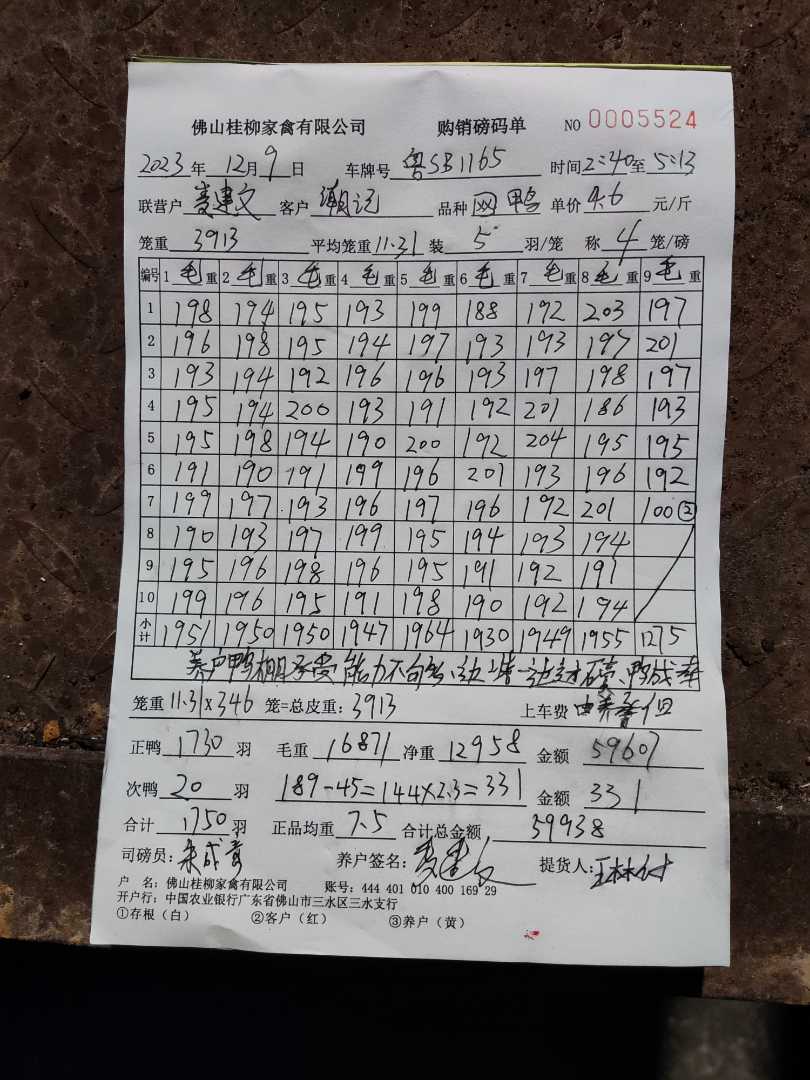 佛山桂柳家禽有限公司 购销磅码单 NO 0005524
2023年12月9日 车牌号 粤SB1165 时间2:40至5:13
联营户 麦建文 客户 潮记 品种 网鸭 单价 4.6 元/斤
笼重 3913 平均笼重 11.31 装 5 羽/笼 称 4 笼/磅
编号 1 毛 重 2 毛 重 3 毛 重 4 毛 重 5 毛 重 6 毛 重 7 毛 重 8 毛 重 9 毛 重
1 198 194 195 193 199 188 192 203 197
2 196 198 195 194 197 193 193 197 201
3 193 194 192 196 196 193 197 198 197
4 195 194 200 193 191 192 201 186 193
5 195 198 194 190 200 192 204 195 195
6 191 190 191 199 196 201 193 196 192
7 199 197 193 196 197 196 192 201 100②
8 190 193 197 199 195 194 193 194
9 195 196 198 196 195 191 192 191
10 199 196 195 191 198 190 192 194
小计 1951 1950 1950 1947 1964 1930 1949 1955 1275
养户鸭棚承受能力不句
笼重 11.31×346 笼=总皮重: 3913 上车费 由养
正鸭 1730 羽 毛重 16871 净重 12958 金额 59607
次鸭 20 羽 189-45=144×2.3=331 金额 331
合计 1750 羽 正品均重 7.5 合计总金额 59938
司磅员: 养户签名: 麦建文 提货人:
户 名: 佛山桂柳家禽有限公司 账号: 444 401 010 400 169 29
开户行: 中国农业银行广东省佛山市三水区三水支行
①存根（白） ②客户（红） ③养户（黄）